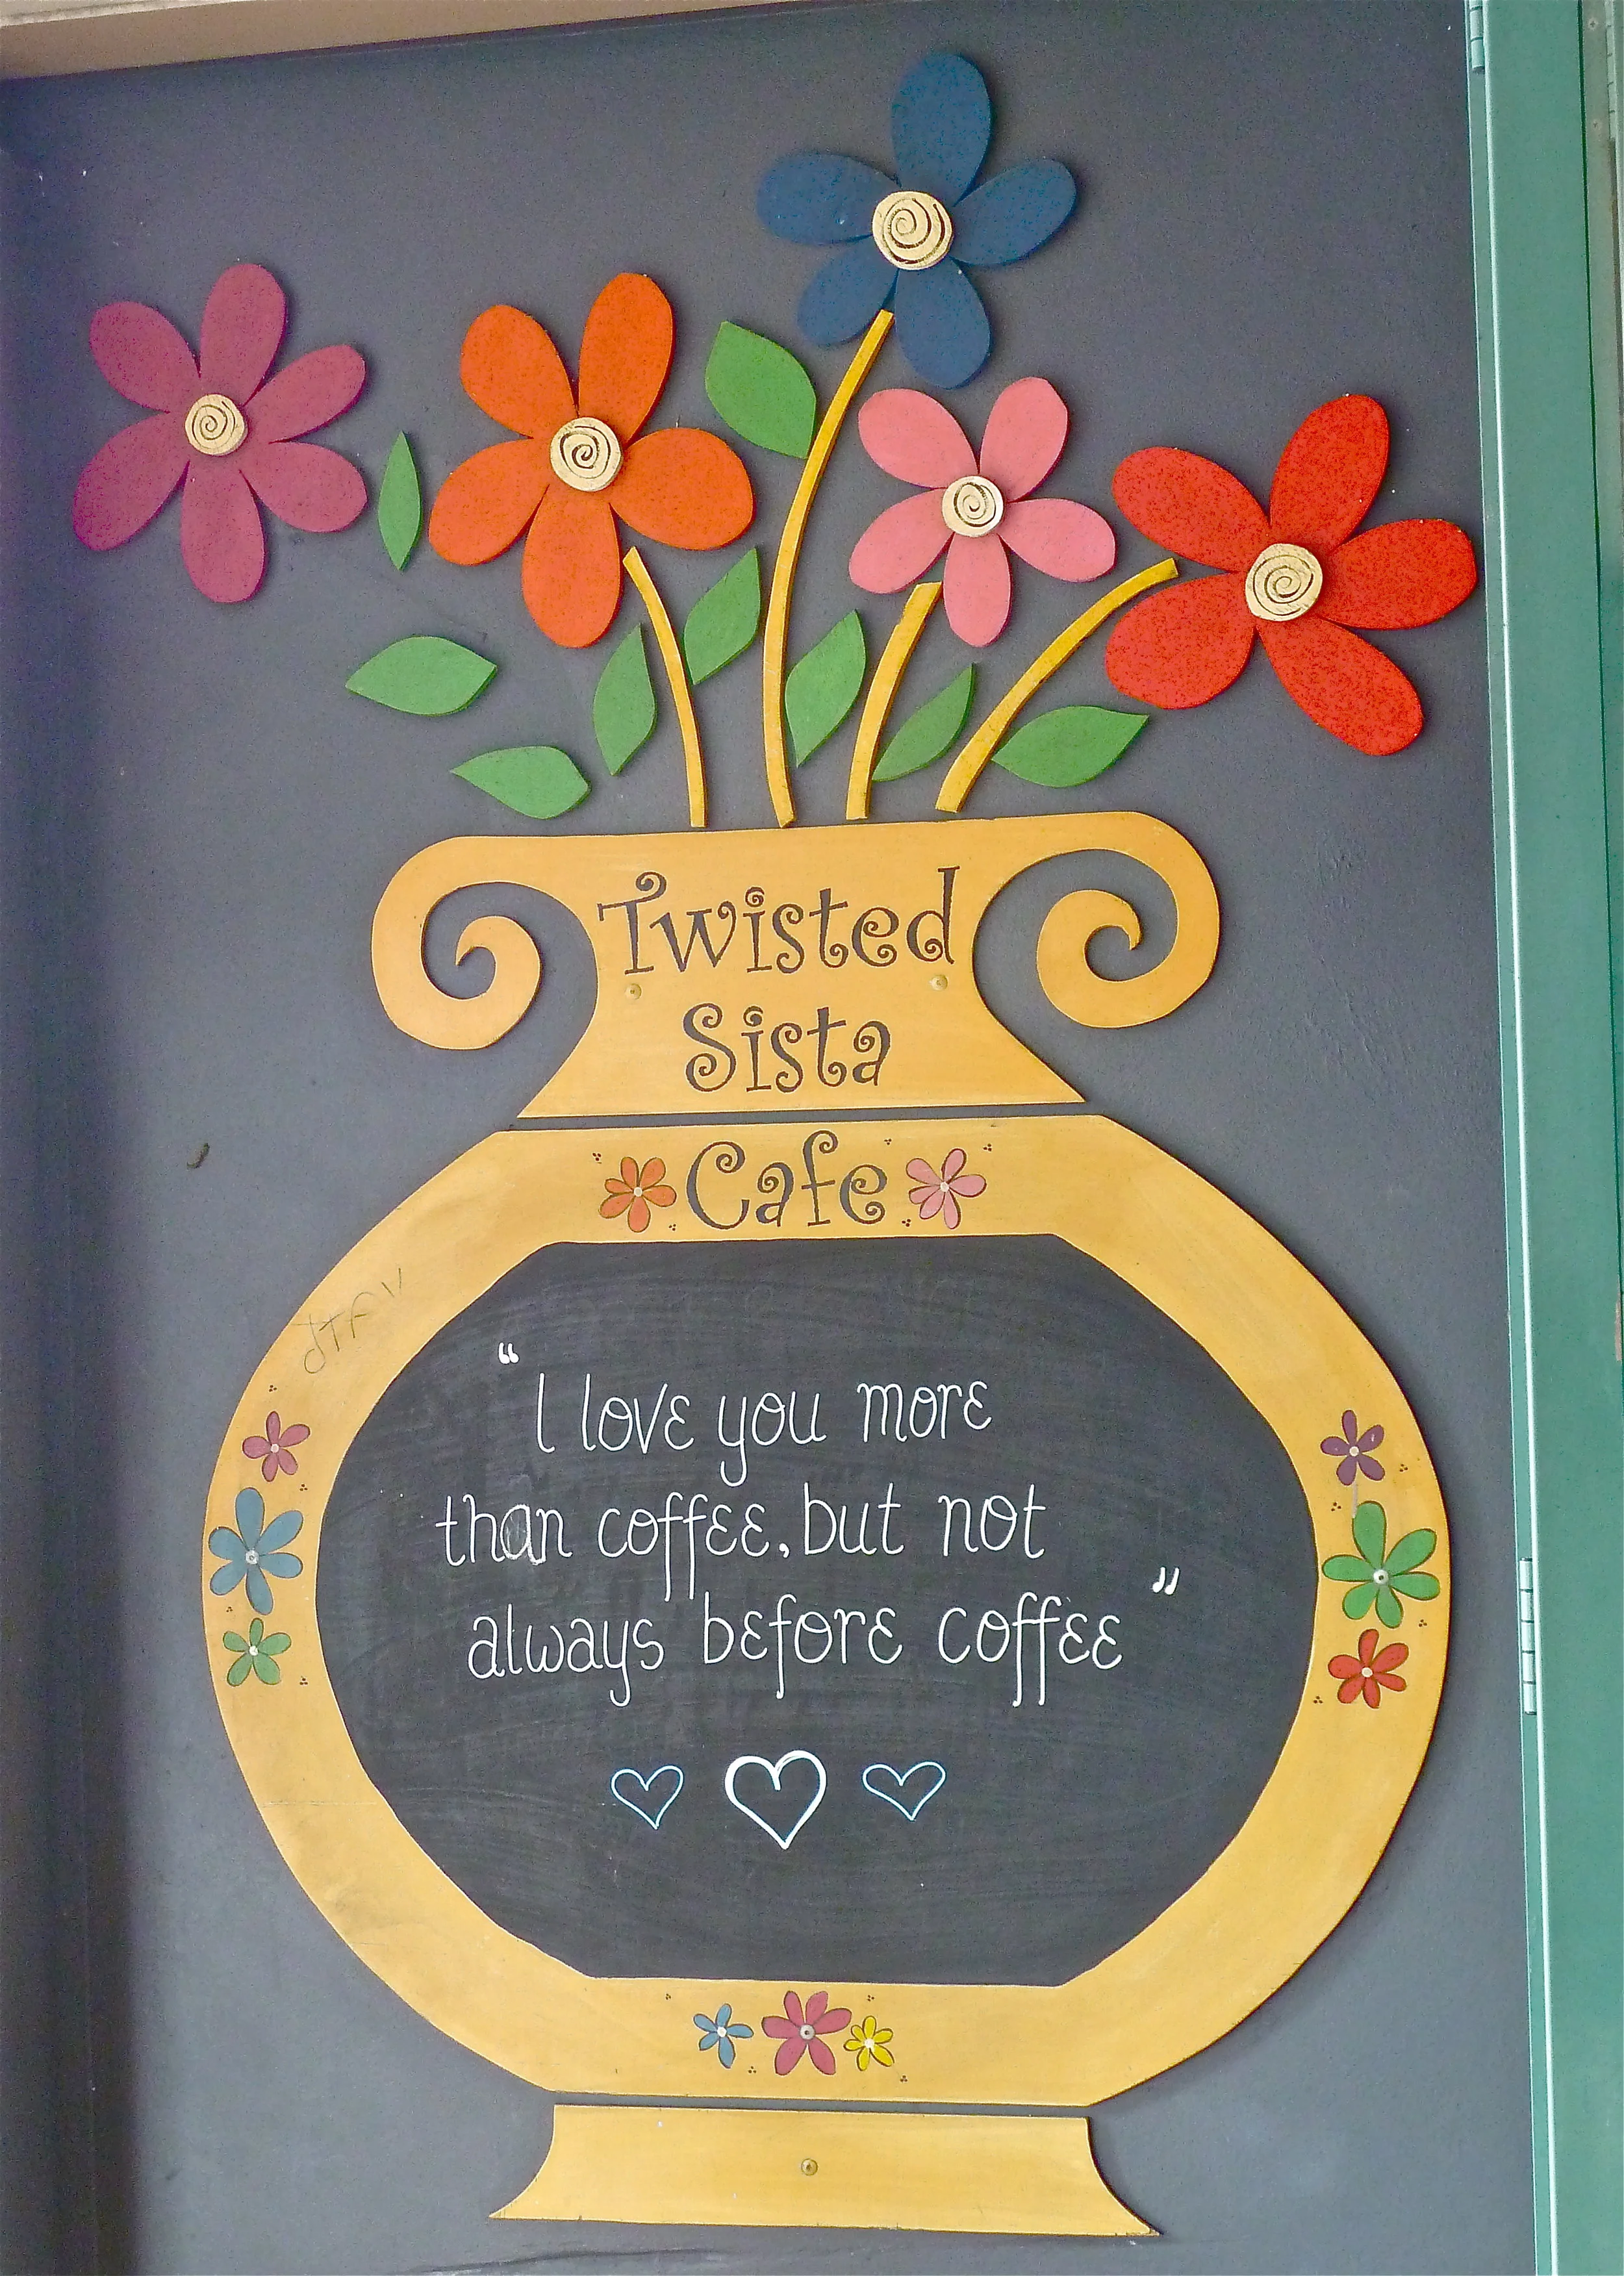 Twisted
Sista
Cafe
“I love you more
than coffee, but not
always before coffee”